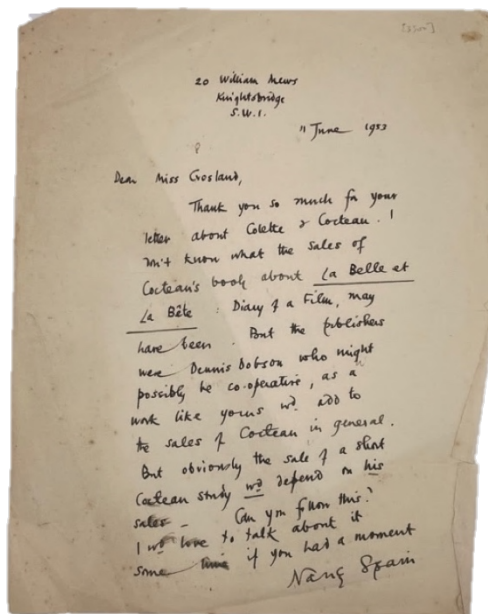 20 William Mews
Knightsbridge
S.W.1.
11 June 1953
Dear Miss Crosland,
Thank you so much for your
letter about Colette & Cocteau. I
don't know what the sales of
Cocteau's book about La Belle et
La Bête : Diary of a Film, may
have been. But the publishers
were Dennis Dobson who might
possibly be co-operative, as a
work like yours wd. add to
the sales of Cocteau in general.
But obviously the sale of a short
Cocteau study wd depend on his
sales – Can you follow this?
I wd love to talk about it
some time if you had a moment
Nancy Spain